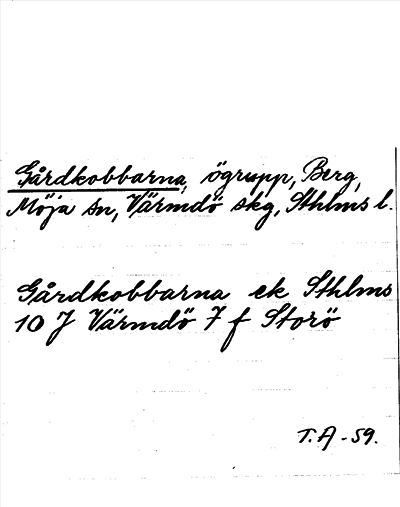 Gårdkobbarna, ögrupp, Berg,
Möja sn, Värmdö skg, Sthlms l.
Gårdkobbarna ek Sthlms
10 J Värmdö 7 f Storö
T.A -59.